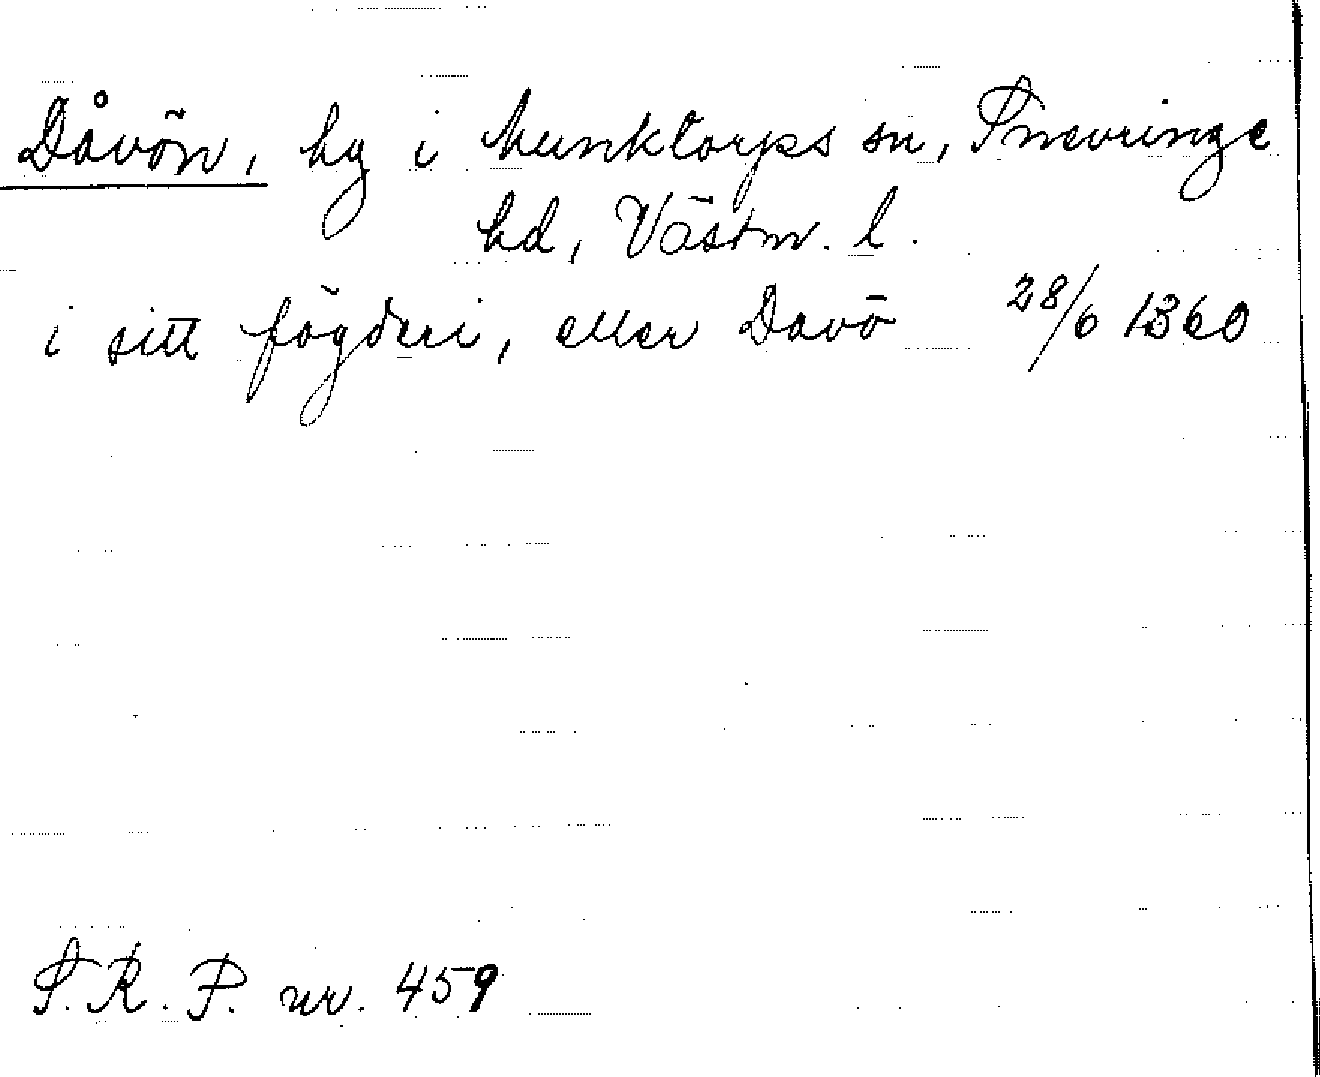 Dåvön, by i Munktorps sn, Snevringe
hd, Västm. l.
i sitt fögderi, eller Davö 28/6 1360
S.R.P. nr. 459